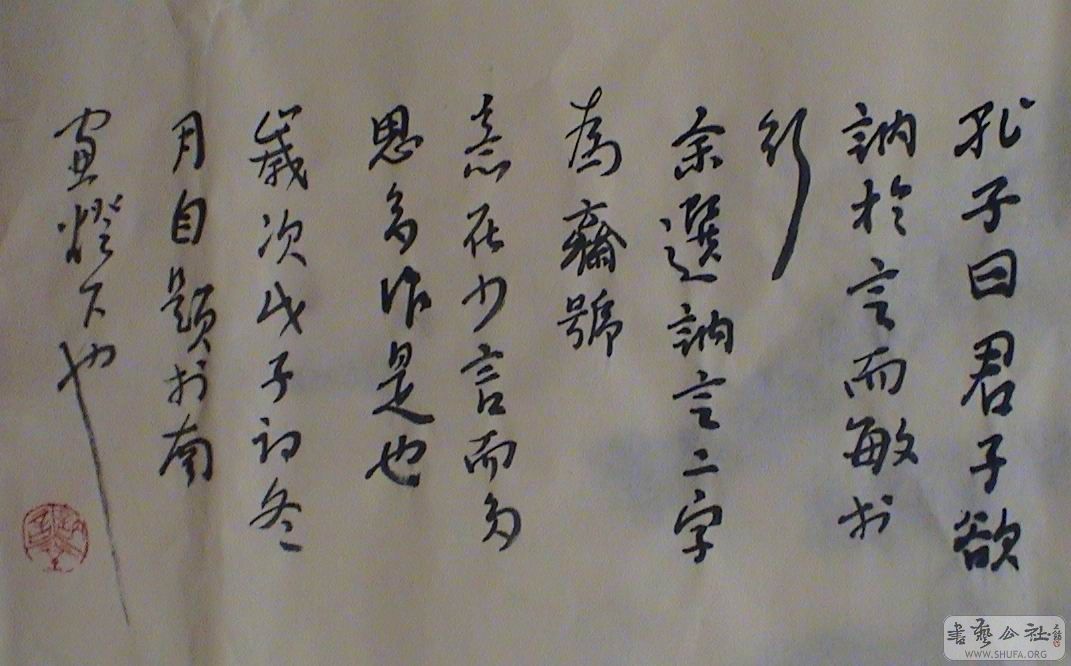 孔子曰君子欲
訥於言而敏於
行
余選訥言二字
為齋號
意在少言而多
思多作是也
歲次戊子初冬
月自題於南
窗燈下也
書藝公社
WWW.SHUFA.ORG